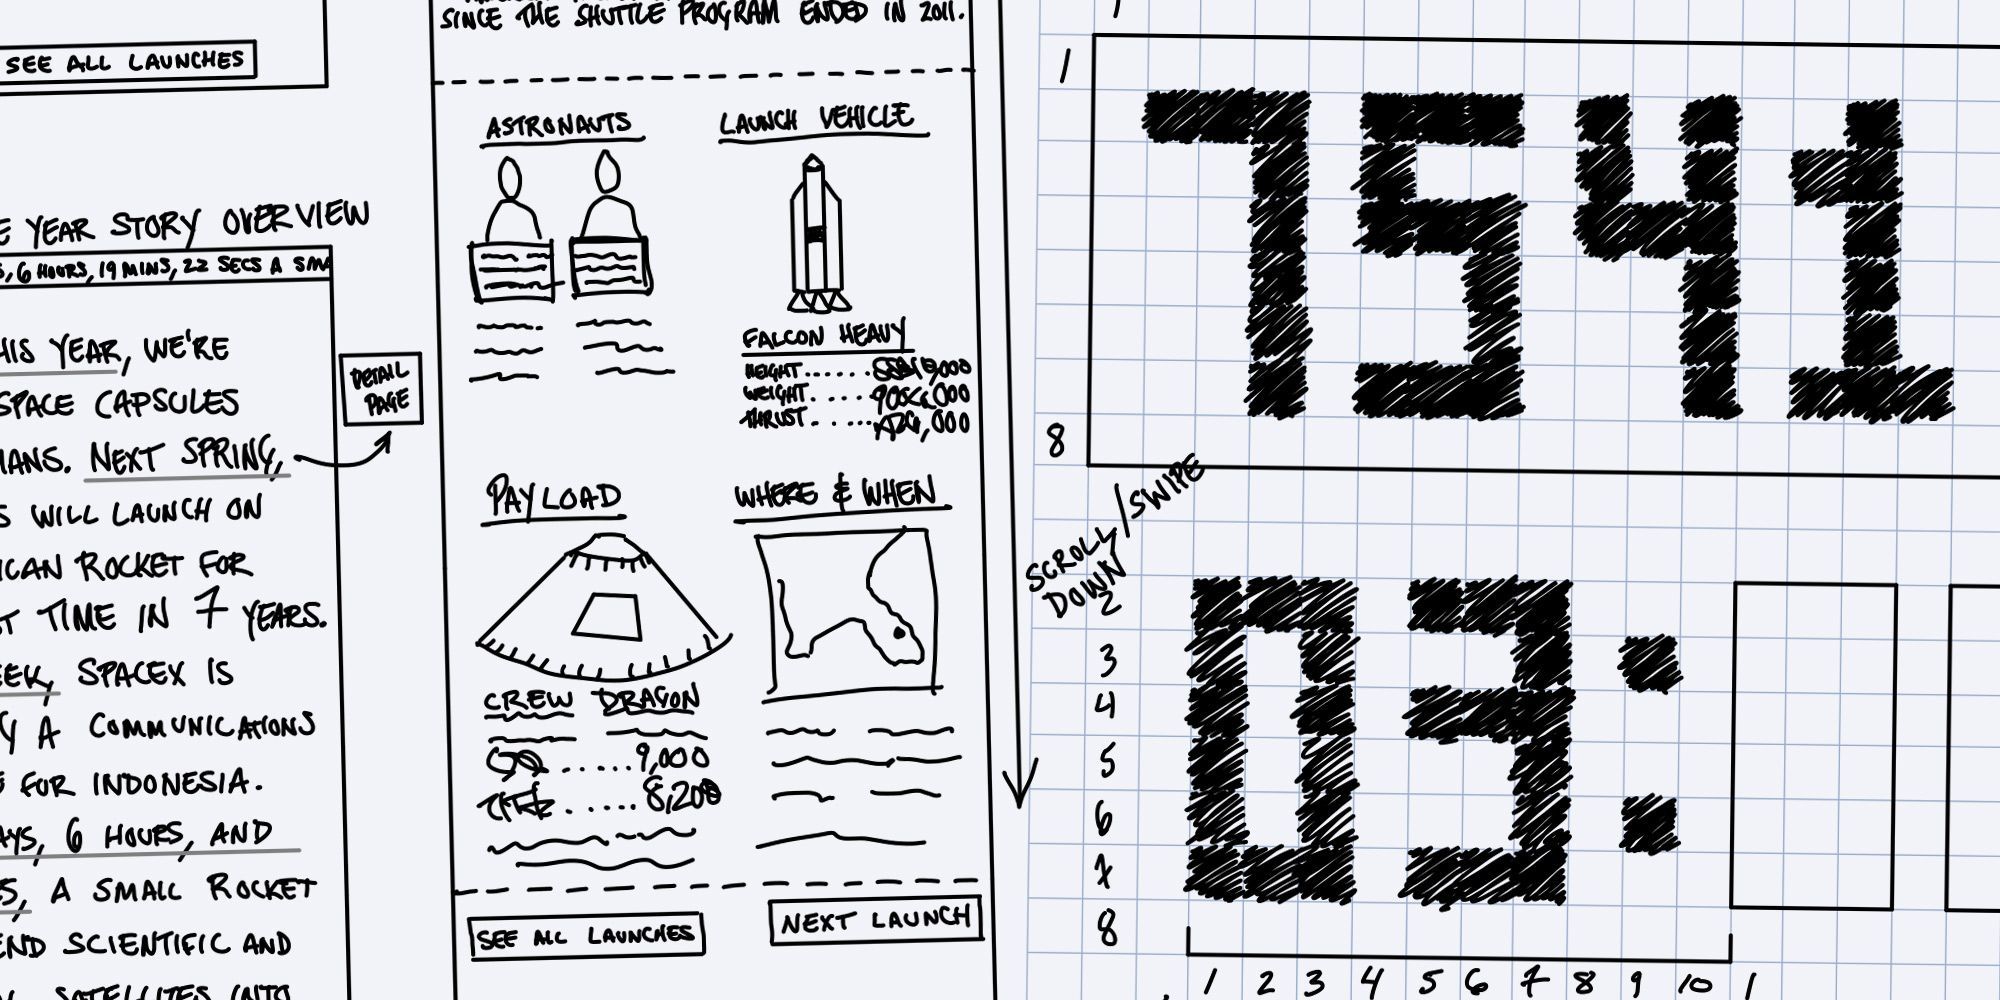 SEE ALL LAUNCHES
YEAR STORY OVERVIEW
6 HOURS, 19 MINS, 22 SECS A
YEAR, WE'RE
SPACE CAPSULES
NEXT SPRING,
WILL LAUNCH ON
ROCKET FOR
TIME IN 7 YEARS.
SPACEX IS
A COMMUNICATIONS
FOR INDONESIA.
6 HOURS, AND
A SMALL ROCKET
SCIENTIFIC AND
DETAIL
PAGE
SINCE THE SHUTTLE PROGRAM ENDED IN 2011.
ASTRONAUTS
LAUNCH VEHICLE
FALCON HEAVY
HEIGHT
WEIGHT
THRUST
PAYLOAD
WHERE & WHEN
CREW DRAGON
9,000
8,200
SEE ALL LAUNCHES
NEXT LAUNCH
SCROLL/SWIPE
DOWN
1
7541
8
03:
2
3
4
5
6
7
8
1 2 3 4 5 6 7 8 9 10 1